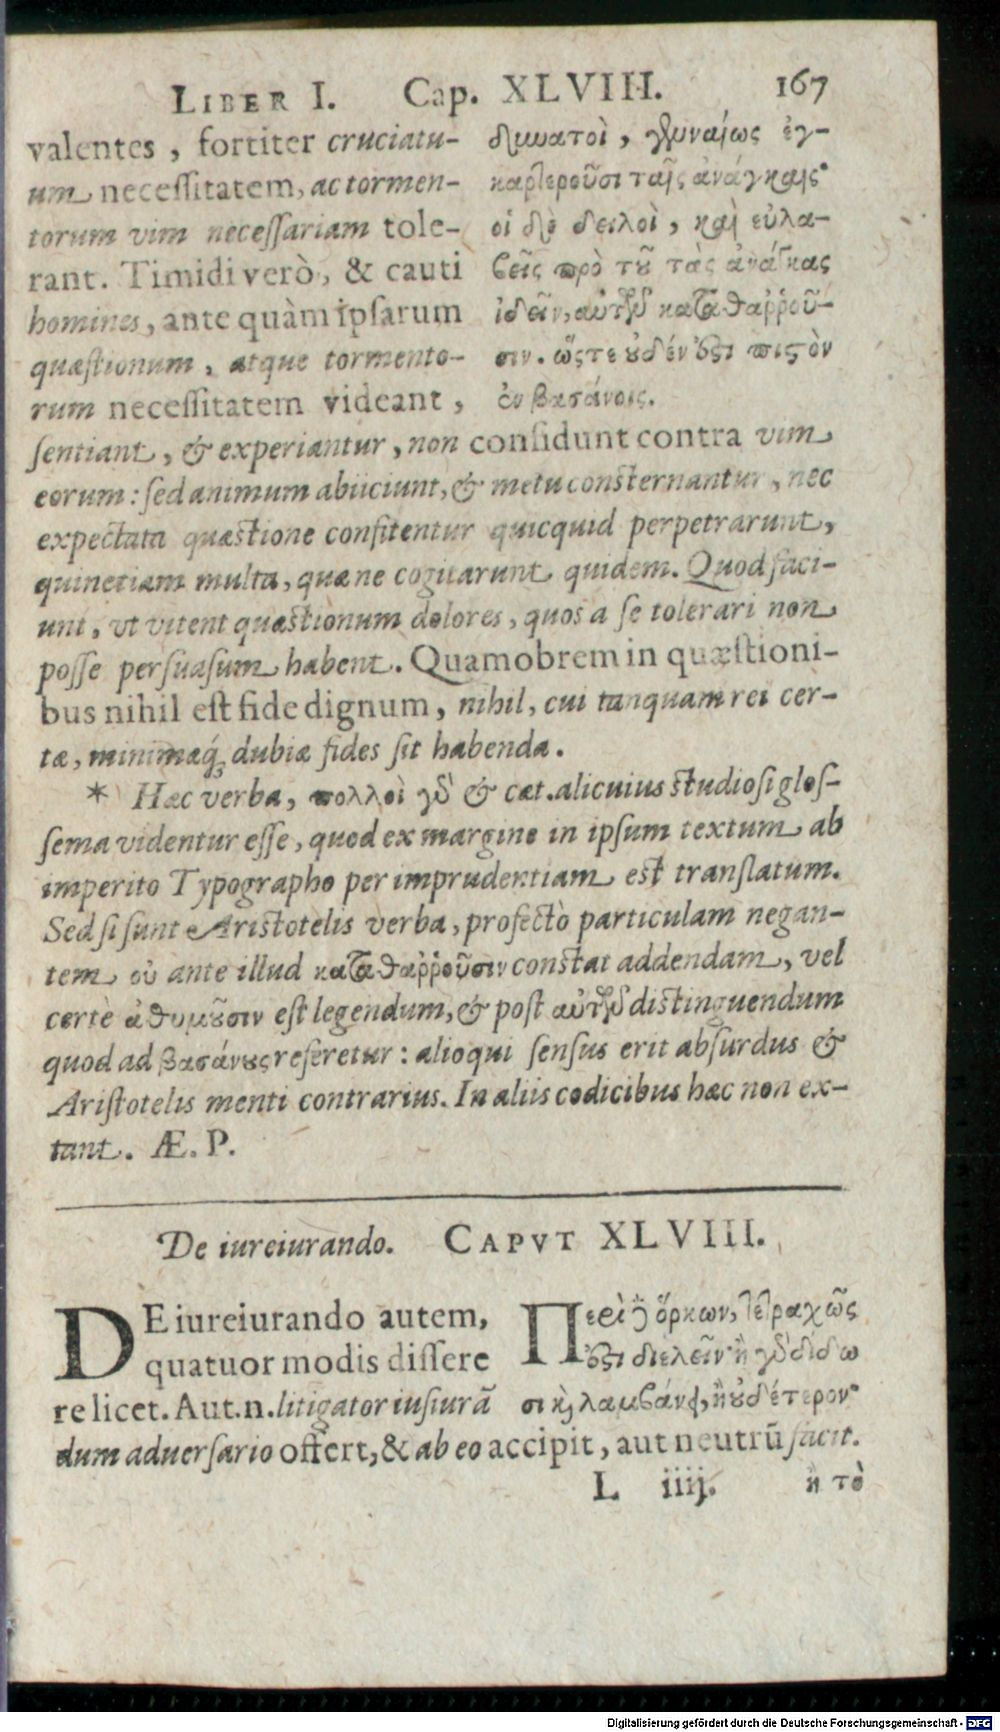 LIBER I. Cap. XLVIII. 167
valentes, fortiter cruciatu-
um necessitatem, ac tormen-
torum vim necessariam tole-
rant. Timidi verò, & cauti
homines, ante quàm ipsarum
quæstionum, atque tormento-
rum necessitatem videant,
δυνατοὶ, γενναίως ἐγ-
καρτεροῦσι ταῖς ἀνάγκαις·
οἱ δὲ δειλοὶ, καὶ εὐλα-
βεῖς πρὸ τοῦ τὰς ἀνάγκας
ἰδεῖν, αὐτῶν καταθαῤῥοῦ-
σιν. ὥστε οὐδέν ἐστι πιστὸν
ἐν βασάνοις.
sentiant, & experiantur, non confidunt contra vim
eorum: sed animum abiiciunt, & metu consternantur, nec
expectata quæstione confitentur quicquid perpetrarunt,
quinetiam multa, quæ ne cogitarunt quidem. Quod faci-
unt, vt vitent quæstionum dolores, quos a se tolerari non
posse persuasum habent. Quamobrem in quæstioni-
bus nihil est fide dignum, nihil, cui tanquam rei cer-
tæ, minimæq́; dubiæ fides sit habenda.
* Hæc verba, πολλοὶ γὰρ & cæt. alicuius studiosi glos-
sema videntur esse, quod ex margine in ipsum textum ab
imperito Typographo per imprudentiam est translatum.
Sed si sunt Aristotelis verba, profectò particulam negan-
tem οὐ ante illud καταθαῤῥοῦσιν constat addendam, vel
certè ἀθυμοῦσιν est legendum, & post αὐτῶν distinguendum
quod ad βασάνους referetur: alioqui sensus erit absurdus &
Aristotelis menti contrarius. In aliis codicibus hæc non ex-
tant. Æ. P.
De iureiurando. CAPVT XLVIII.
DE iureiurando autem,
quatuor modis dissere
re licet. Aut.n. litigator iusiurã
Περὶ δ' ὅρκων, τετραχῶς
ἐστι διελεῖν· ἢ γὰρ δίδω
σι καὶ λαμβάνει, ἢ οὐδέτερον·
dum aduersario offert, & ab eo accipit, aut neutrũ facit.
L iiij. ἢ τὸ
Digitalisierung gefördert durch die Deutsche Forschungsgemeinschaft - DFG